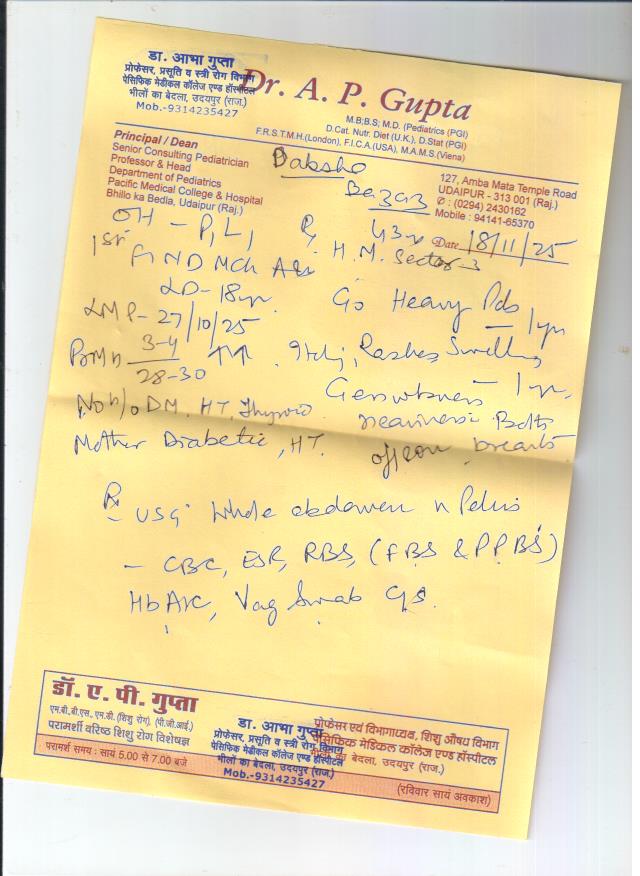 डा. आभा गुप्ता
प्रोफेसर, प्रसूति व स्त्री रोग विभाग
पेसिफिक मेडीकल कॉलेज एण्ड हॉस्पीटल
भीलों का बेदला, उदयपुर (राज.)
Mob.-9314235427
Dr. A. P. Gupta
M.B;B.S; M.D. (Pediatrics (PGI)
D.Cat. Nutr. Diet (U.K.), D.Stat (PGI)
F.R.S.T.M.H.(London), F.I.C.A.(USA), M.A.M.S.(Viena)
Principal / Dean
Senior Consulting Pediatrician
Professor & Head
Department of Pediatrics
Pacific Medical College & Hospital
Bhillo ka Bedla, Udaipur (Raj.)
127, Amba Mata Temple Road
UDAIPUR - 313 001 (Raj.)
✆ : (0294) 2430162
Mobile : 94141-65370
Daksha
OH - P1 L1 43y
Date 18/11/25
1st FTND MCh H.M. Sector-3
LD- 18yr c/o Heavy Pds - 1yr
LMP- 27/10/25
3-4 / 28-30 ↑↑ Itching, Rashes, Swelling
No h/o DM, HT, Thyroid
Mother Diabetic, HT. breasts
℞ USG Whole abdomen n Pelvis
- CBC, ESR, RBS, (FBS & PPBS)
HbA1C, Vag Swab C/S.
डॉ. ए. पी. गुप्ता
एम.बी.बी.एस., एम.डी. (शिशु रोग), (पी.जी.आई.)
परामर्शी वरिष्ठ शिशु रोग विशेषज्ञ
परामर्श समय : सायं 5.00 से 7.00 बजे
डा. आभा गुप्ता
प्रोफेसर, प्रसूति व स्त्री रोग विभाग
पेसिफिक मेडीकल कॉलेज एण्ड हॉस्पीटल
भीलों का बेदला, उदयपुर (राज.)
Mob.-9314235427
प्रोफेसर एवं विभागाध्यक्ष, शिशु औषध विभाग
पेसिफिक मेडिकल कॉलेज एण्ड हॉस्पीटल
बेदला, उदयपुर (राज.)
(रविवार सायं अवकाश)